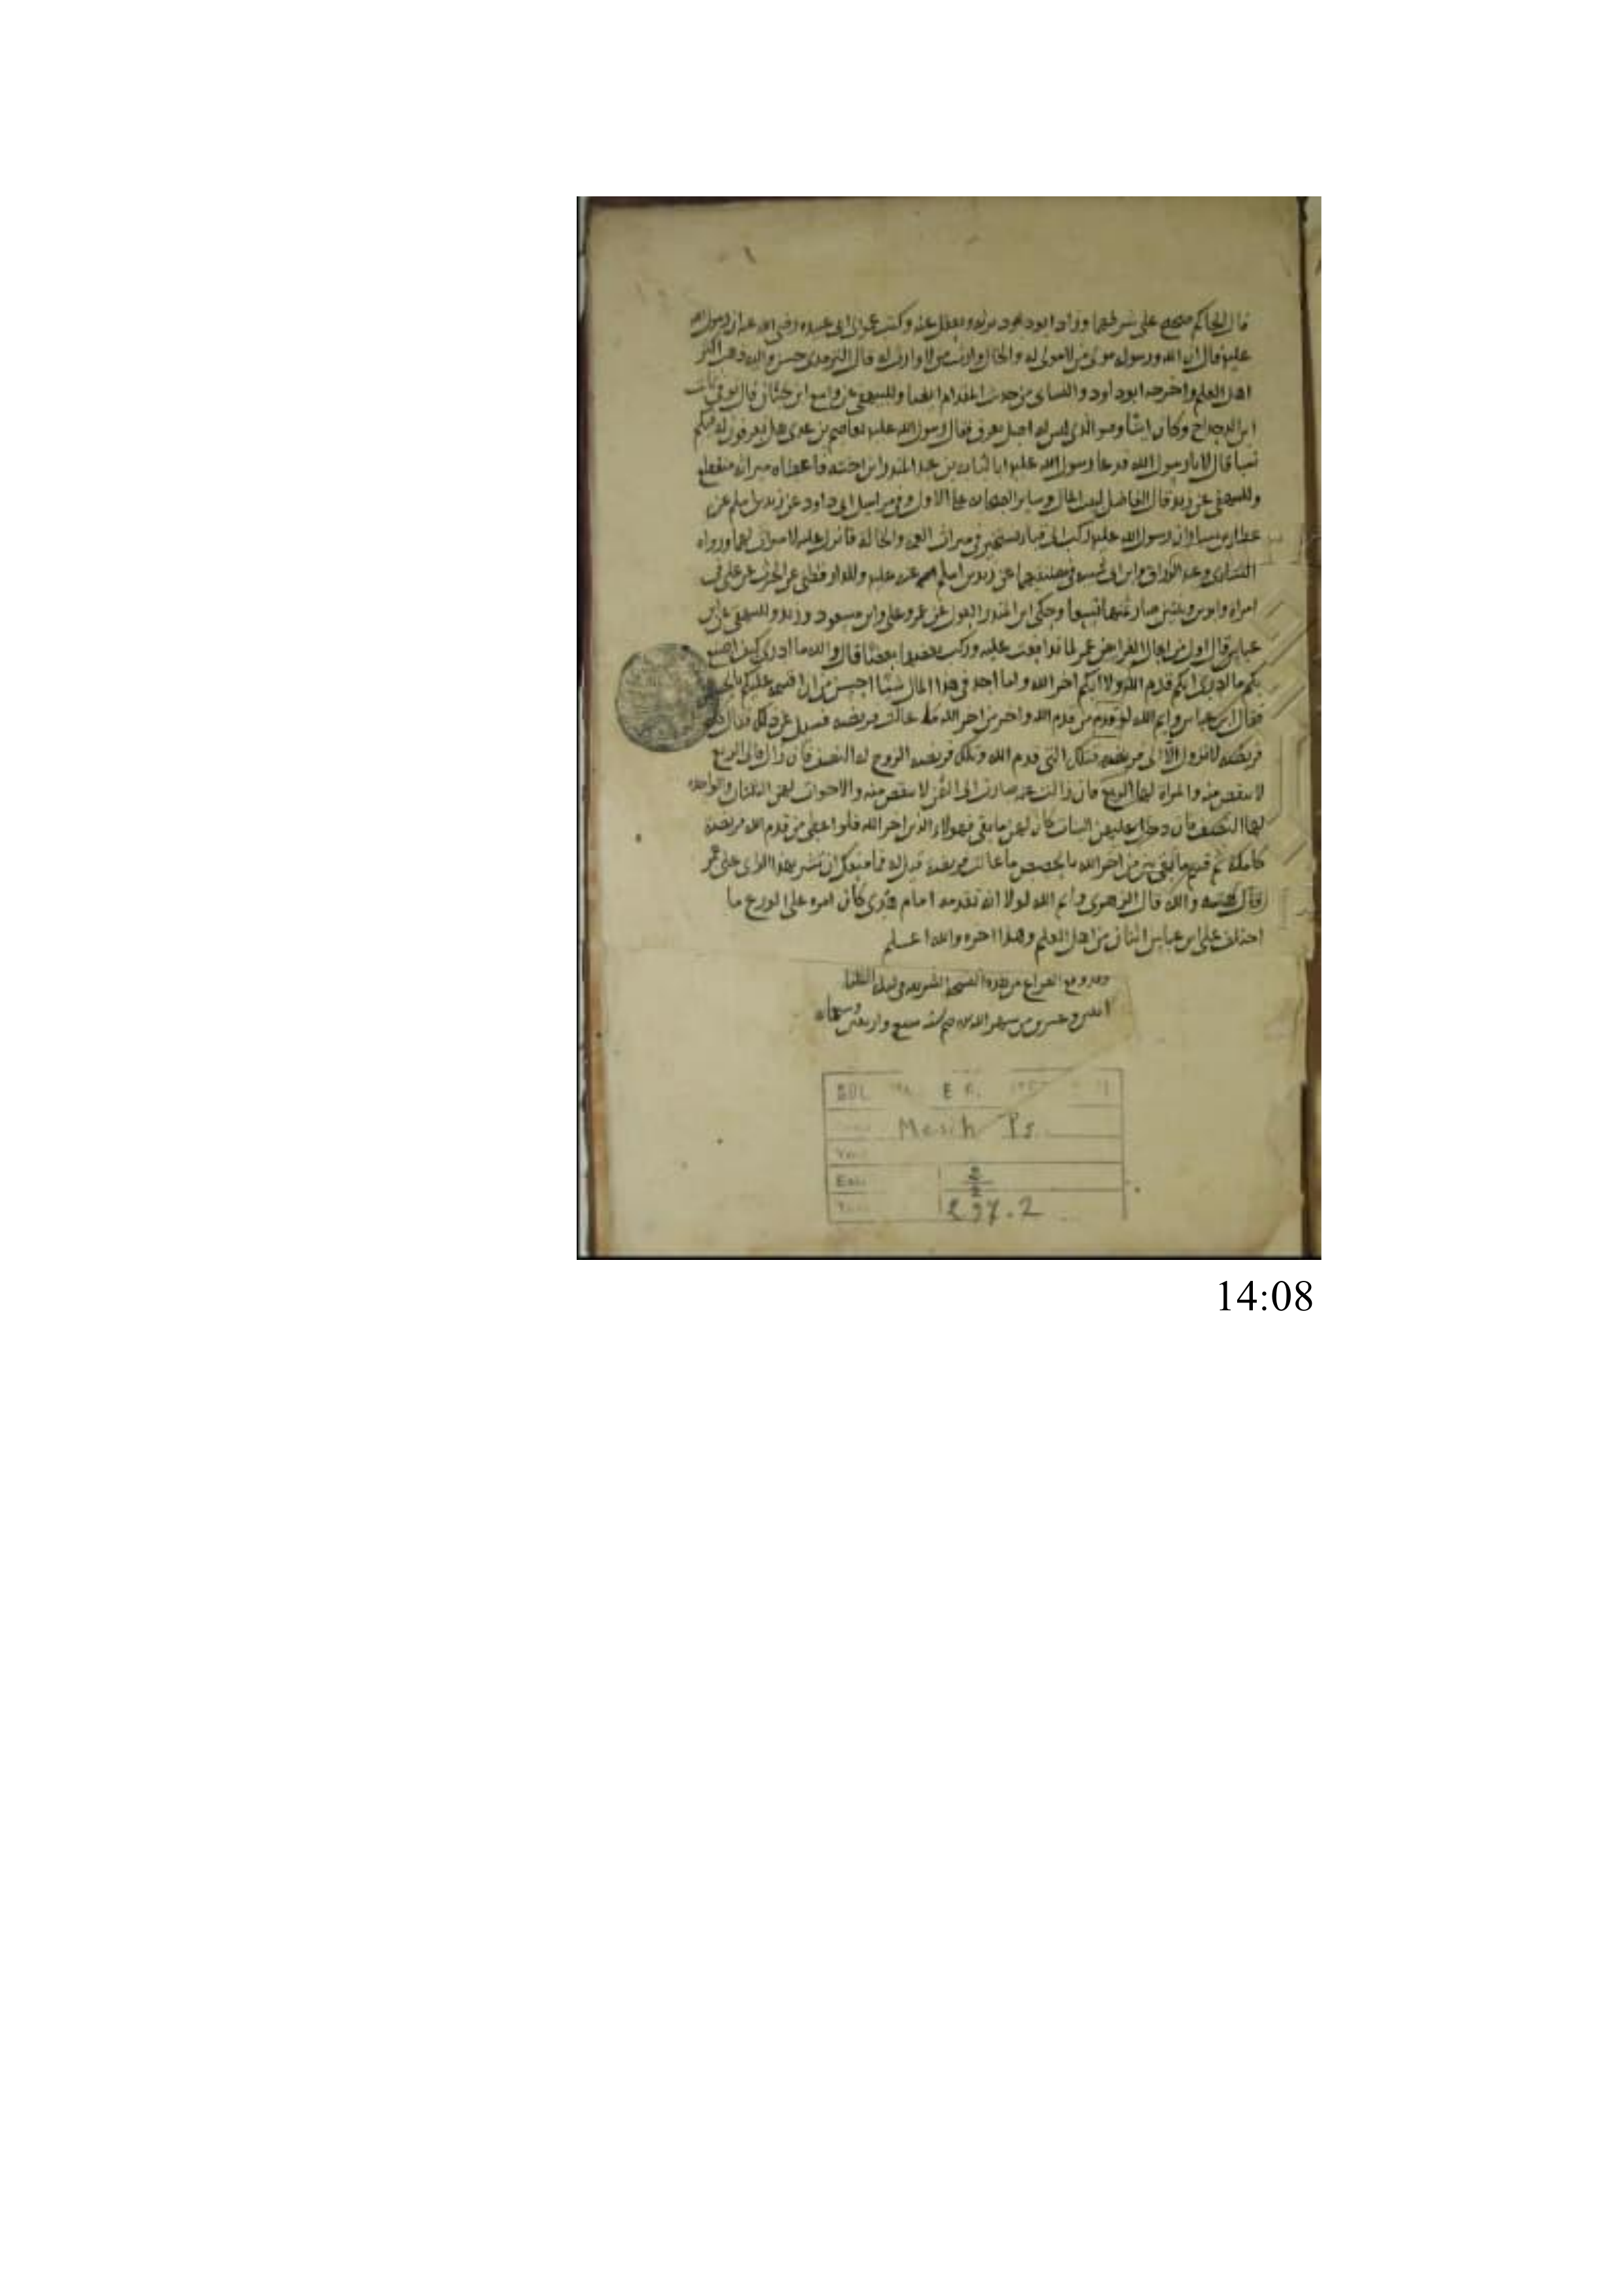 قال الحاكم صحيح على شرطهما وزاد ابو داود يرثه ويعقل عنه وكتب عمر الى ابى عبيده رضى الله عنه ان رسول الله
عليه قال ان الله ورسوله مولى من لا مولى له والخال وارث من لا وارث له قال الترمذى حسن واليه ذهب اكثر
اهل العلم واخرجه ابو داود والنساى من حديث المقدام ايضا وللبيهقى عن واسع ابن حبان قال توفى ثابت
ابن الدحداح وكان اتيا وهو الذى ليس له اصل يعرف فقال رسول الله عليه لعاصم بن عدى هل تعرفون له فيكم
نسبا قال لا يا رسول الله فدعا رسول الله عليه ابا لبابة بن عبد المنذر ابن اخته فاعطاه ميراثه منقطع
وللبيهقى عن زيد قال الفاضل لبيت المال وساير الصحابه على الاول وفى مراسيل ابى داود عن زيد بن اسلم عن
عطا بن يسار ان رسول الله عليه ركب الى قبا يستخير فى ميراث العمه والخالة فانزل عليه لا ميراث لهما ورواه
النساى وعبد الرزاق وابن ابى شيبه فى مصنفيهما عن زيد بن اسلم عنه عليه وللدارقطنى عن الحرث عن على فى
امراة وابوين وبنتين صار ثمنها تسعا وحكى ابن المنذر العول عن عمر وعلى وابن مسعود وزيد وللبيهقى عن ابن
عباس قال اول من اعال الفرايض عمر لما تدافعت عليه وركب بعضها بعضا قال والله ما ادرى كيف اصنع
بكم ما ادرى ايكم قدم الله ولا ايكم اخر الله وما اجد فى هذا المال شيئا احسن من ان اقسمه عليكم
فقال ابن عباس وايم الله لو قدم من قدم الله واخر من اخر الله ما عالت فريضه فسيل عن ذلك فقال
فريضه لا تزول الا الى فريضه فتلك التى قدم الله وتلك فريضه الزوج له النصف فان زال فالى الربع
لا ينقص منه والمراة لها الربع فان زالت عنه صارت الى الثمن لا ينقص منه والاخوات لهن الثلثان والواحده
لها النصف فان دخل عليهن البنات كان لهن ما بقى فهولاء الذين اخر الله فلو اعطى من قدم الله فريضة
كاملة ثم قسم ما بقى بين من اخر الله بالحصص ما عالت فريضه قيل له فما منعك ان تشير بهذا الراى على عمر
قال هبته والله قال الزهرى وايم الله لولا انه تقدمه امام هدى كان امره على الورع ما
اختلف على ابن عباس اثنان من اهل العلم وهذا اخره والله اعلم
وقد وقع الفراغ من هذه النسخة الشريفه فى ليلة الثلثا
سنه سبع واربعين وسبعماه
Mesih Ps.
297.2
14:08